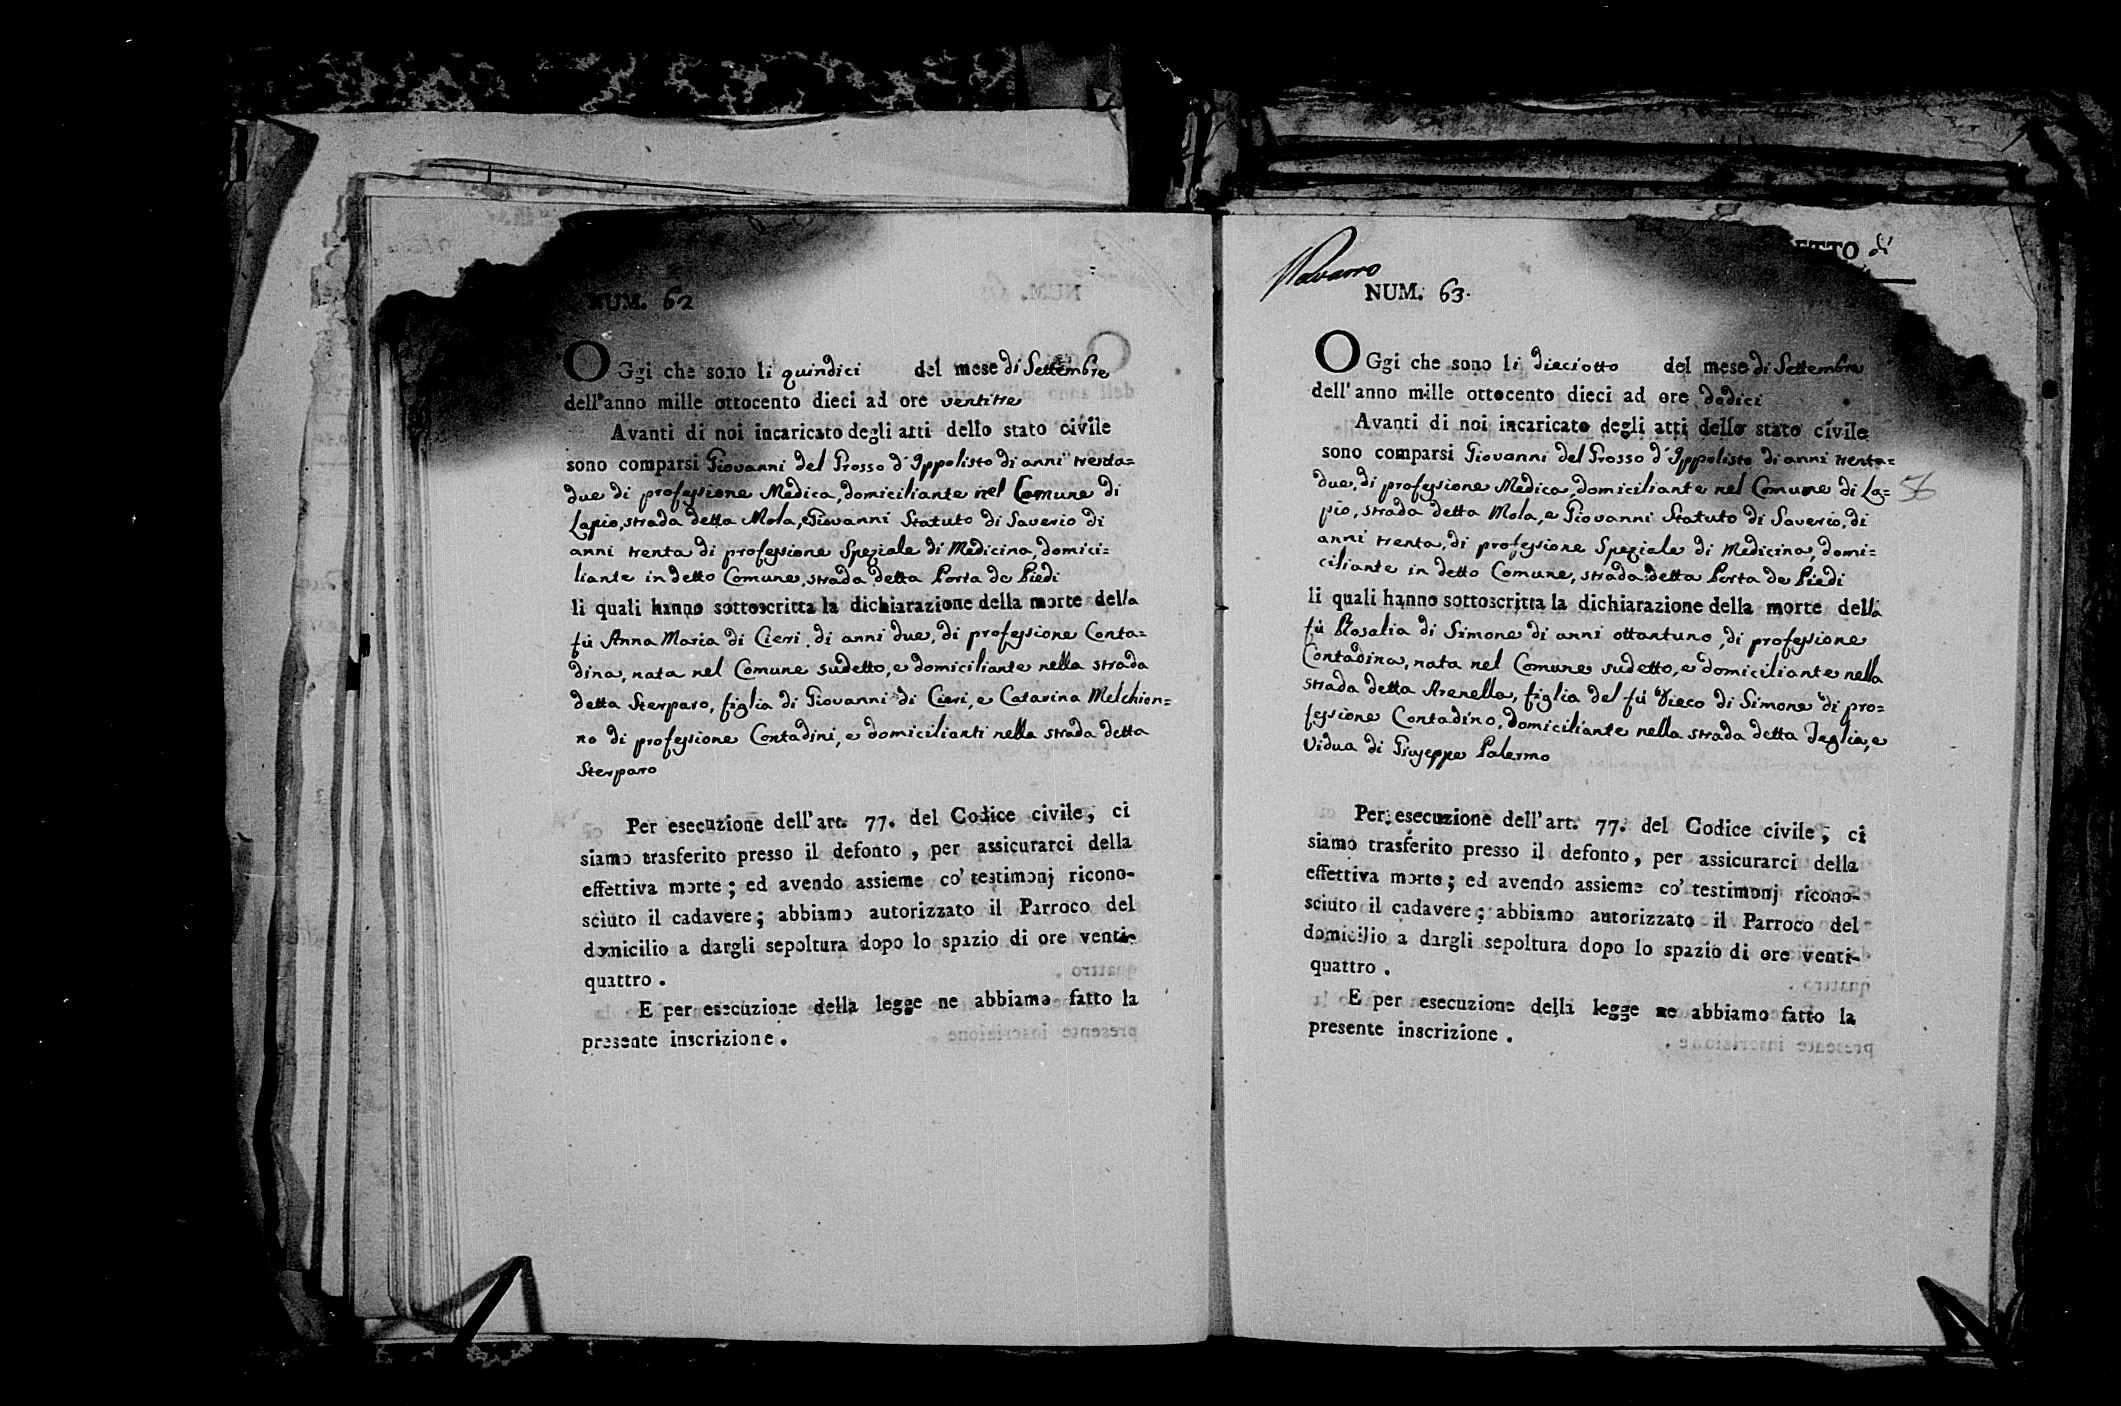 NUM. 62
OGgi che sono li quindici del mese di Settembre
dell'anno mille ottocento dieci ad ore ventitre
Avanti di noi incaricato degli atti dello stato civile
sono comparsi Giovanni del Grosso d'Ippolisto di anni trenta=
due di professione Medica, domiciliante nel Comune di
Lapio, strada detta Mola, e Giovanni Statuto di Saverio di
anni trenta di professione Speziale di Medicina, domici=
liante in detto Comune, strada detta Porta de Piedi
li quali hanno sottoscritta la dichiarazione della morte della
fù Anna Maria di Cieri, di anni due, di professione Conta=
dina, nata nel Comune sudetto, e domiciliante nella strada
detta Sterparo, figlia di Giovanni di Cieri, e Catarina Melchion=
no di professione Contadini, e domicilianti nella strada detta
Sterparo
Per esecuzione dell'art. 77. del Codice civile, ci
siamo trasferito presso il defonto, per assicurarci della
effettiva morte; ed avendo assieme co' testimonj ricono-
sciuto il cadavere; abbiamo autorizzato il Parroco del
domicilio a dargli sepoltura dopo lo spazio di ore venti-
quattro.
E per esecuzione della legge ne abbiamo fatto la
presente inscrizione.
ETTO di
Navarro
NUM. 63.
OGgi che sono li dieciotto del mese di Settembre
dell'anno mille ottocento dieci ad ore dodici
Avanti di noi incaricato degli atti dello stato civile
sono comparsi Giovanni del Grosso d'Ippolisto di anni trenta=
due, di professione Medica, domiciliante nel Comune di La=
56
pio, strada detta Mola, e Giovanni Statuto di Saverio, di
anni trenta, di professione Speziale di Medicina, domi=
ciliante in detto Comune, strada detta Porta de Piedi
li quali hanno sottoscritta la dichiarazione della morte della
fù Rosalia di Simone di anni ottantuno, di professione
Contadina, nata nel Comune sudetto, e domiciliante nella
strada detta Arenella, figlia del fù Dieco di Simone di pro=
fessione Contadino, domiciliante nella strada detta Teglia, e
Vidua di Giuseppe Palermo
Per esecuzione dell'art. 77. del Codice civile, ci
siamo trasferito presso il defonto, per assicurarci della
effettiva morte; ed avendo assieme co' testimonj ricono-
sciuto il cadavere; abbiamo autorizzato il Parroco del
domicilio a dargli sepoltura dopo lo spazio di ore venti-
quattro.
E per esecuzione della legge ne abbiamo fatto la
presente inscrizione.